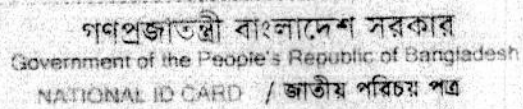 গণপ্রজাতন্ত্রী বাংলাদেশ সরকার
Government of the People's Republic of Bangladesh
NATIONAL ID CARD / জাতীয় পরিচয় পত্র